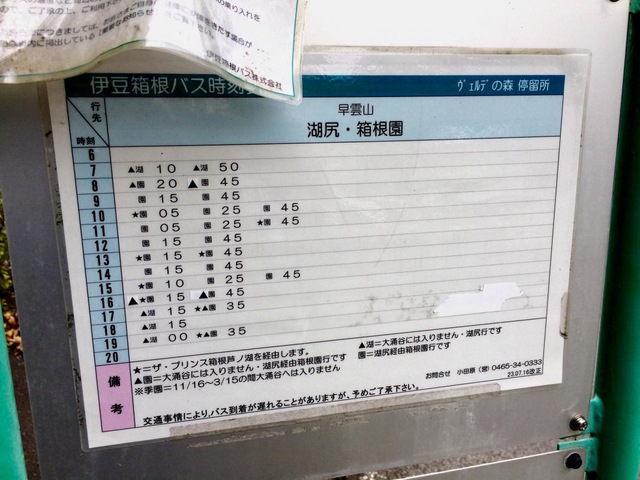 の乗り入れを
、ご了承の上、ご利用下
きたす場合が
に掲出している【重要なお知らせ
伊豆箱根バス株式会社
伊豆箱根バス時刻
ヴェルデの森 停留所
行先
時刻
早雲山
湖尻・箱根園
6
7 ▲湖 10 ▲湖 50
8 ▲園 20 ▲園 45
9 園 15 園 45
10 ★園 05 園 25 園 45
11 園 05 園 25 ★園 45
12 園 15 園 45
13 ★園 15 ★園 45
14 園 15 園 45
15 ★園 10 園 25 園 45
16 ▲★園 15 ▲園 45
17 ▲湖 15 ★▲園 35
18 ▲湖 15
19 ▲湖 00 ★▲園 35
20
備考
★=ザ・プリンス箱根芦ノ湖を経由します。
▲湖=大涌谷には入りません・湖尻行です
▲園=大涌谷には入りません・湖尻経由箱根園行です
園=湖尻経由箱根園行です
※季園=11/16~3/15の間大涌谷へは入りません
お問合せ 小田原(営)0465-34-0333
23.07.16改正
交通事情により、バス到着が遅れることがありますが、予めご了承下さい。